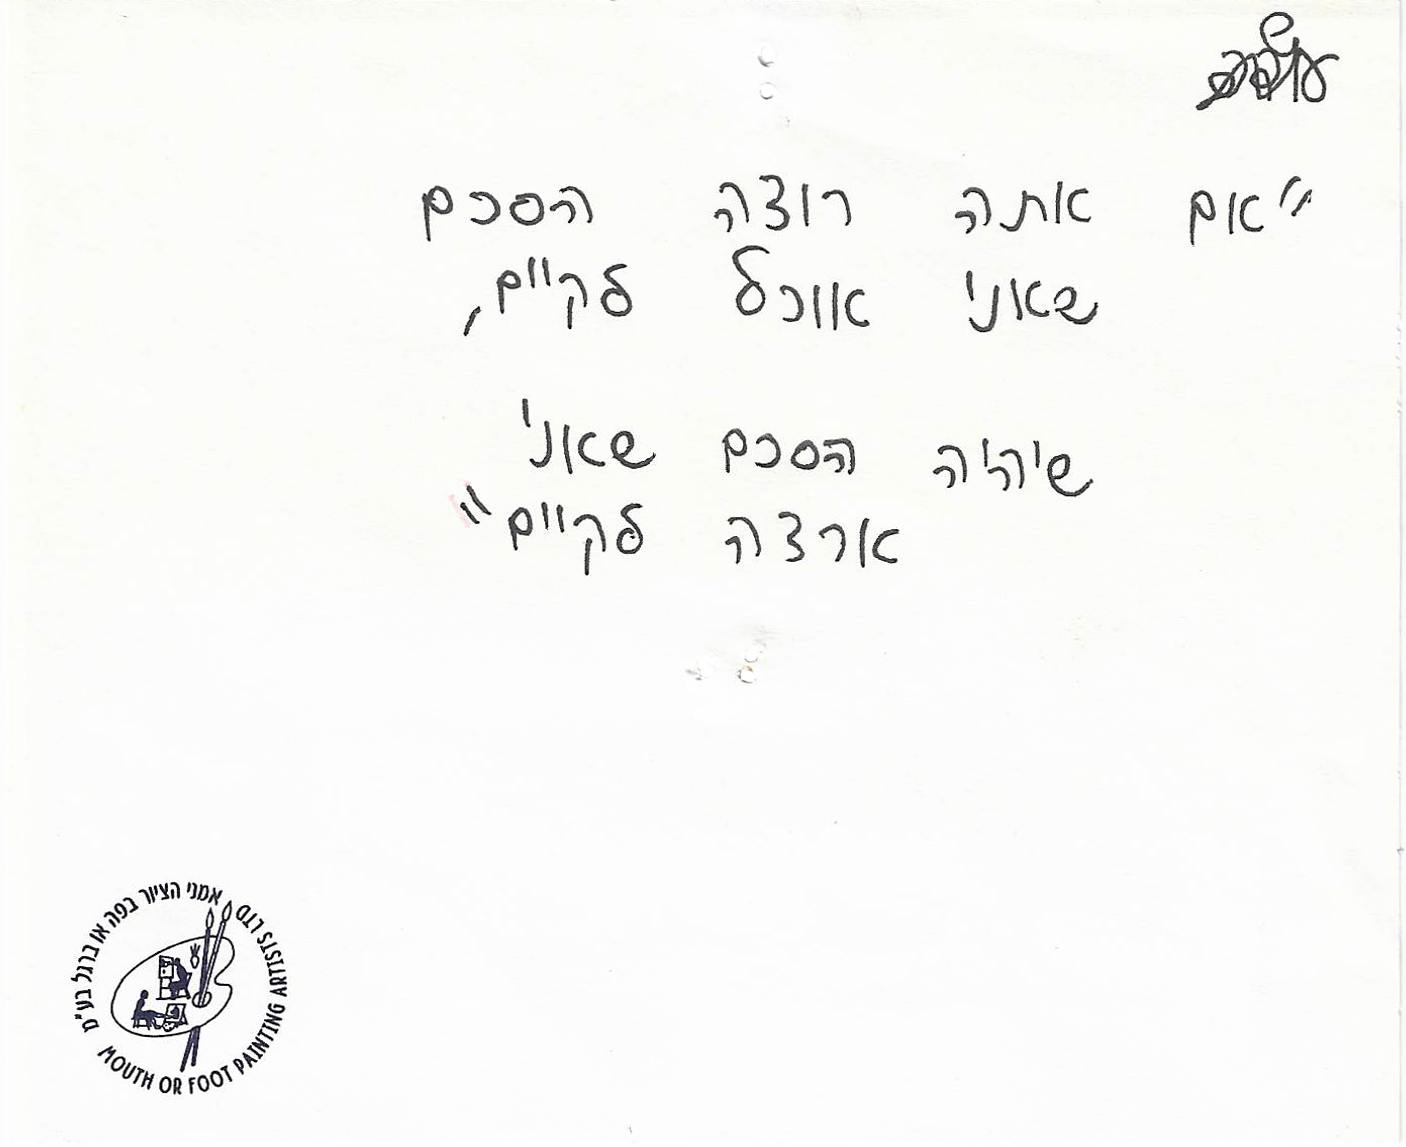 "אם אתה רוצה הסכם
שאני אוכל לקיים,
שיהיה הסכם שאני
ארצה לקיים"
אמני הציור בפה או ברגל בע"מ
MOUTH OR FOOT PAINTING ARTISTS LTD